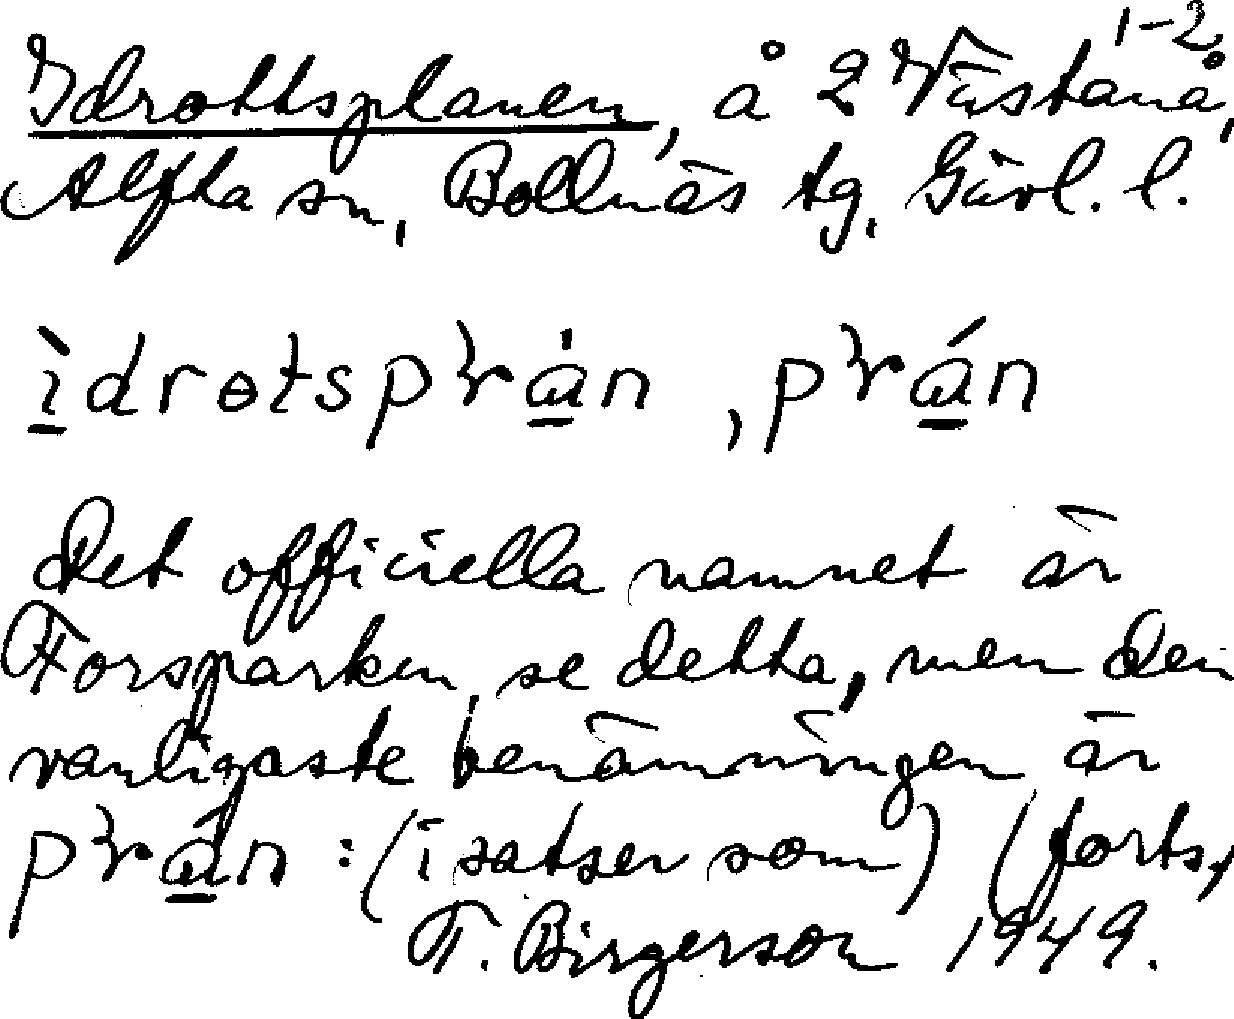 Idrottsplanen, å 2 Västanå 1-2,
Alfta sn, Bollnäs tg, Gävl. l.
ìdrotspɽàn, pɽán
Det officiella namnet är
Forsparken, se detta, men den
vanligaste benämningen är
pɽán : (i satser som) (forts,
F. Birgerson 1949.